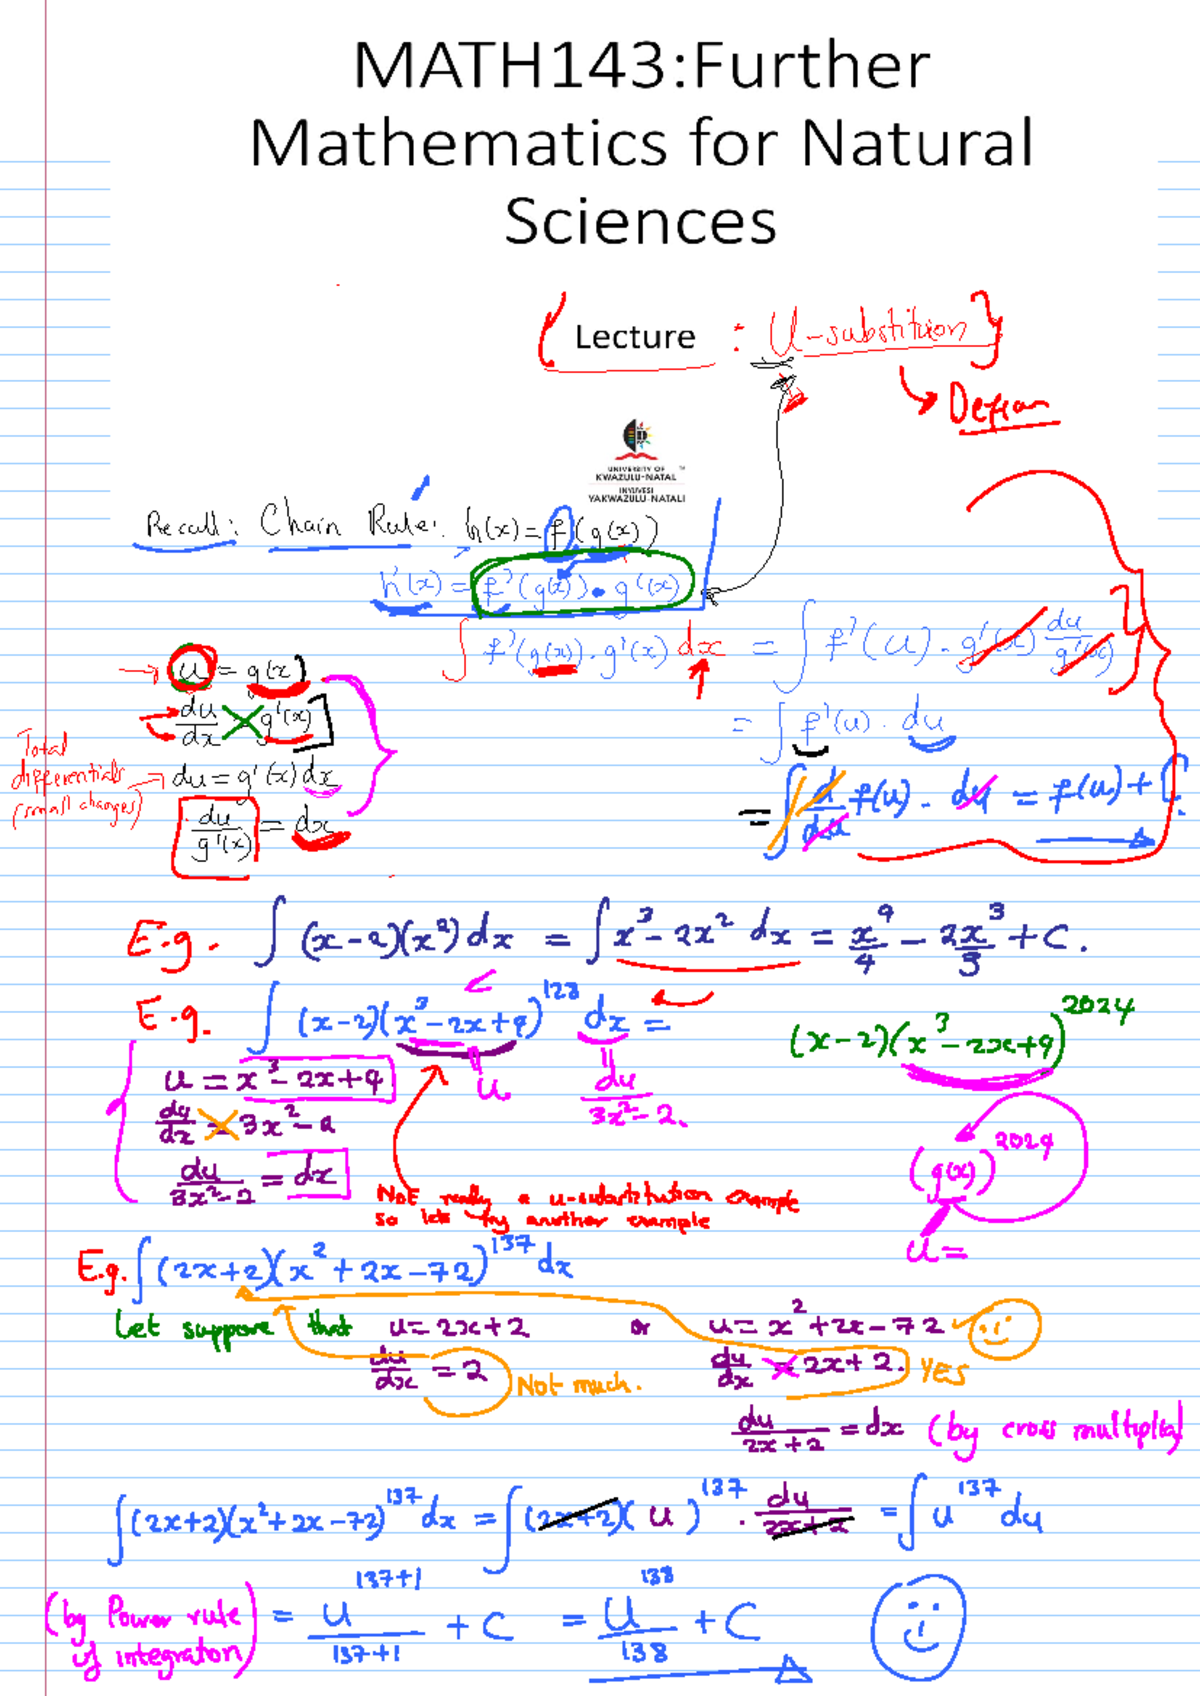 MATH143:Further
Mathematics for Natural
Sciences
Lecture : U-substitution
UNIVERSITY OF ™
KWAZULU-NATAL
INYUVESI
YAKWAZULU-NATALI
Recall: Chain Rule: h(x) = f(g(x))
h'(x) = f'(g(x)) • g'(x)
∫ f'(g(x)) · g'(x) dx = ∫ f'(u) · g'(x) du/g'(x)
→ u = g(x)
du/dx = g'(x)
= ∫ f'(u) · du
Total differentials (small changes) → du = g'(x) dx
du/g'(x) = dx
= ∫ d/du f(u) · du = f(u) + C
E.g. ∫ (x-2)(x²) dx = ∫ x³ - 2x² dx = x⁴/4 - 2x³/3 + C.
E.g. ∫ (x-2)(x³-2x+9)¹²³ dx =
(x-2)(x³-2x+9)²⁰²⁴
u = x³-2x+9
u
du/3x²-2.
du/dx = 3x²-2
du/3x²-2 = dx
(g(x))²⁰²⁴
Not really a u-substitution example
so lets try another example
u =
E.g. ∫ (2x+2)(x²+2x-72)¹³⁷ dx
Let suppose that u = 2x+2 or u = x²+2x-72
du/dx = 2 Not much. du/dx = 2x+2. Yes
du/2x+2 = dx (by cross multiplica)
∫(2x+2)(x²+2x-72)¹³⁷ dx = ∫(2x+2)(u)¹³⁷ · du/2x+2 = ∫ u¹³⁷ du
(by Power rule of integration) = u¹³⁷⁺¹/137+1 + C = u¹³⁸/138 + C